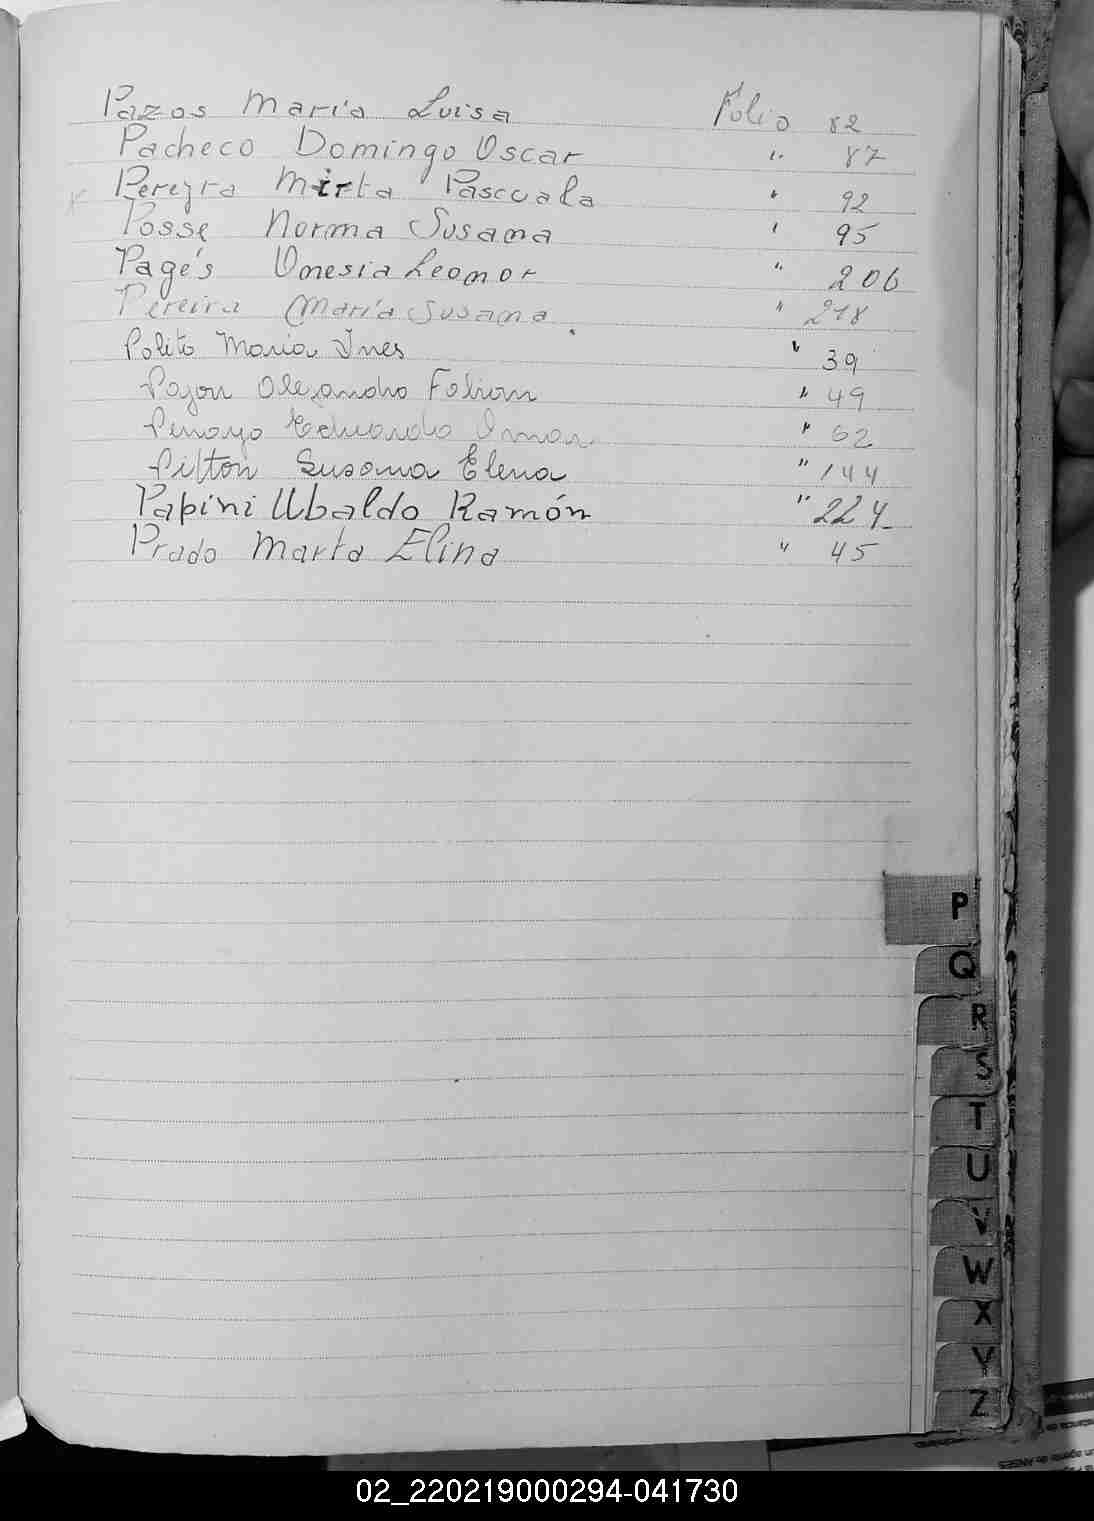 Pazos Maria Luisa Folio 82
Pacheco Domingo Oscar " 87
Pereyra Mirta Pascuala " 92
Posse Norma Susana " 95
Pagés Onesia Leonor " 206
Pereira María Susana " 218
Polito Maria Ines " 39
Alejandro Fabian " 49
Eduardo Omar " 62
Pilton Susana Elena " 144
Papini Ubaldo Ramón " 224
Prado Marta Elina " 45
P
Q
R
S
T
U
V
W
X
Y
Z
02_220219000294-041730